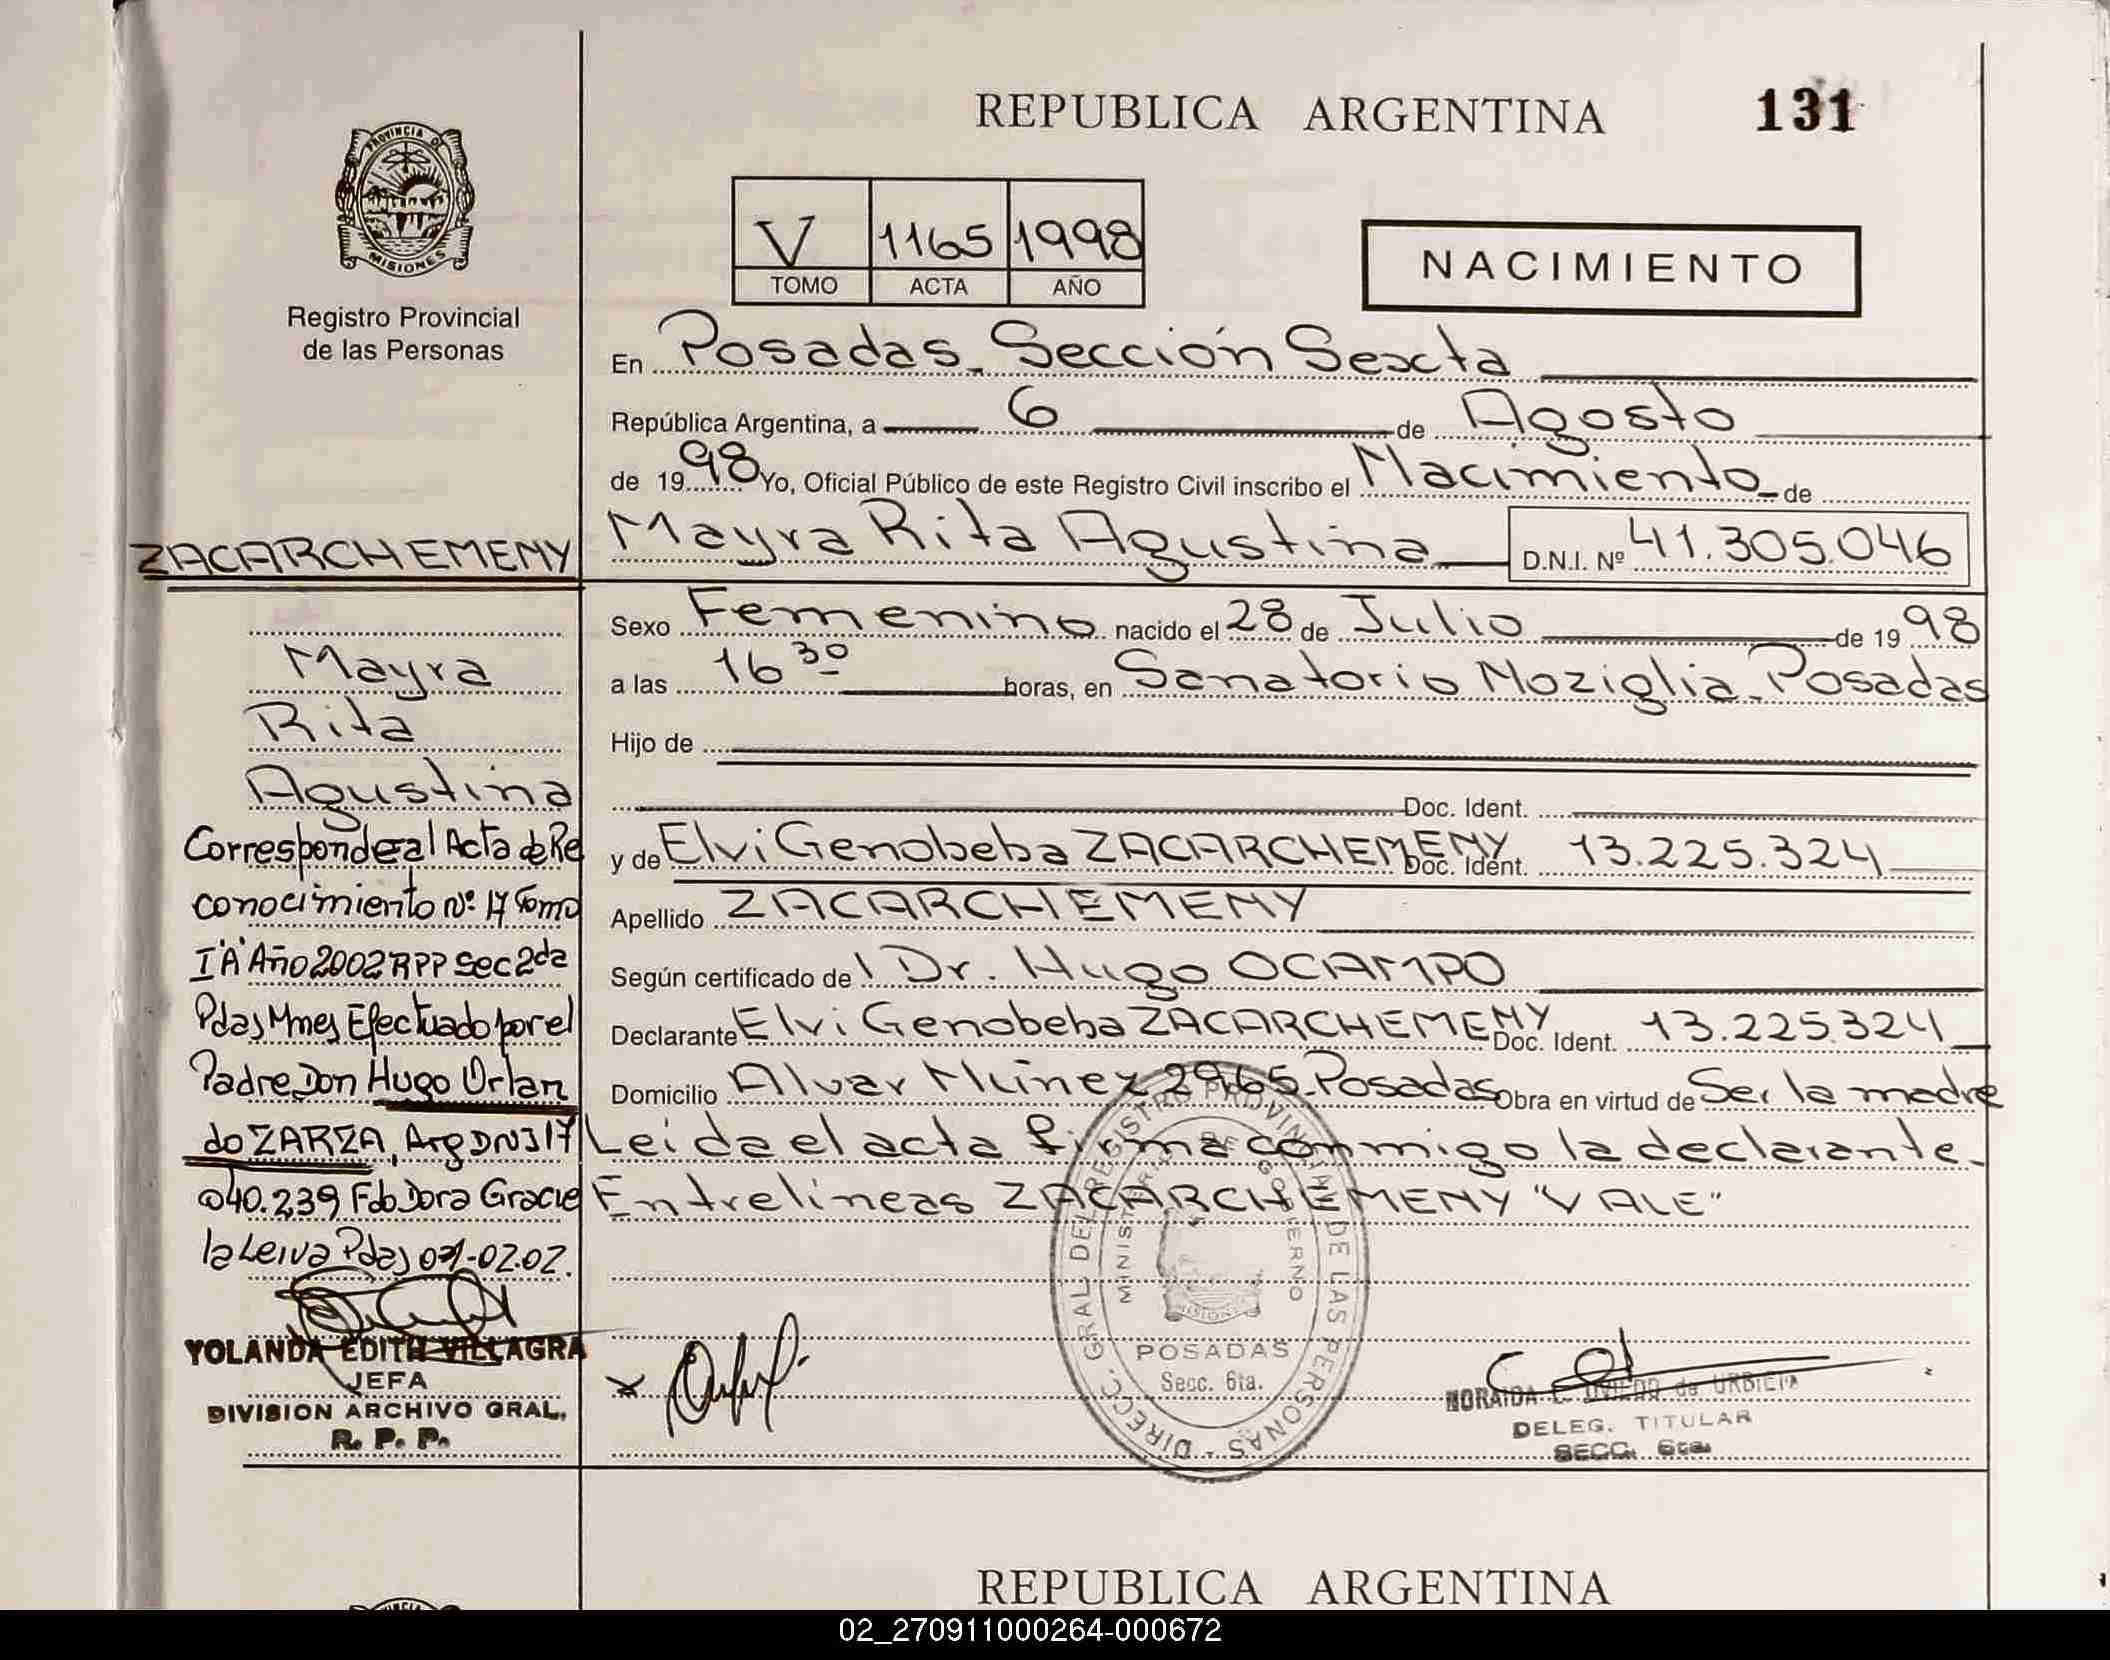 REPUBLICA ARGENTINA 131
PROVINCIA DE
MISIONES
Registro Provincial
de las Personas
V 1165 1998
TOMO ACTA AÑO
NACIMIENTO
En Posadas - Sección Sexta
República Argentina, a 6 de Agosto
de 1998 Yo, Oficial Público de este Registro Civil inscribo el Nacimiento - de
Mayra Rita Agustina D.N.I. Nº 41.305.046
Sexo Femenino nacido el 28 de Julio de 1998
a las 16 30 horas, en Sanatorio Moziglia - Posadas
Hijo de
Doc. Ident.
y de Elvi Genobeba ZACARCHEMENY Doc. Ident. 13.225.324
Apellido ZACARCHEMENY
Según certificado de Dr. Hugo OCAMPO
Declarante Elvi Genobeba ZACARCHEMENY Doc. Ident. 13.225.324
Domicilio Alvar Nuñez 2965 - Posadas Obra en virtud de Ser la madre
Leida el acta firma conmigo la declarante -
Entrelineas ZACARCHEMENY "VALE"
ZACARCHEMENY
Mayra
Rita
Agustina
Corresponde al Acta de Re
conocimiento Nº 17 Tomo
I "A" Año 2002 RPP Sec 2da
Pdas Mnes Efectuado por el
Padre Don Hugo Orlan
do ZARZA, Arg DNI 17
040.239 Fdo Dora Gracie
la Leiva Pdas -02-02.
YOLANDA EDITH VILLAGRA
JEFA
DIVISION ARCHIVO GRAL.
R. P. P.
DIRECC. GRAL DEL REGISTRO PROVINCIAL DE LAS PERSONAS
MINISTERIO DE GOBIERNO
MISIONES
POSADAS
Secc. 6ta.
NORAIDA E. OVIEDO de URBIETA
DELEG. TITULAR
SECC. 6ta.
REPUBLICA ARGENTINA
02_270911000264-000672